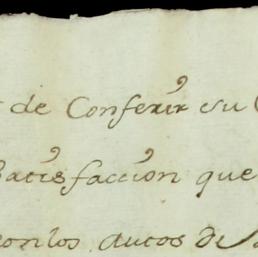 de Conferir su
Satisfaccion que
con los autos de